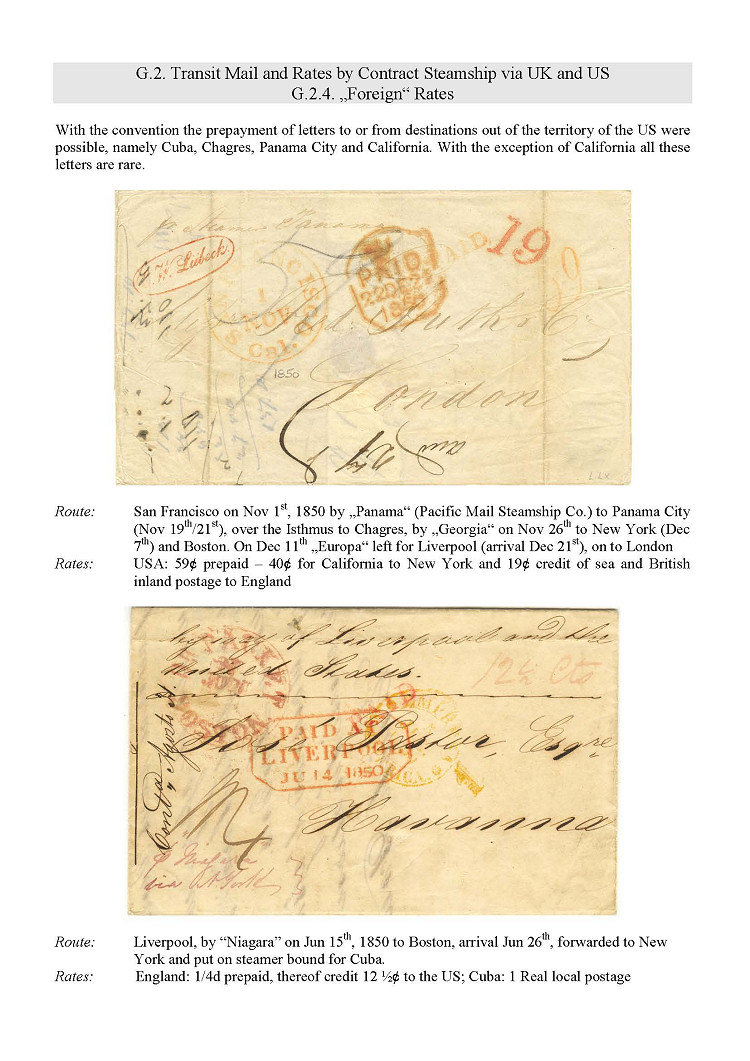 G.2. Transit Mail and Rates by Contract Steamship via UK and US
G.2.4. „Foreign“ Rates
With the convention the prepayment of letters to or from destinations out of the territory of the US were
possible, namely Cuba, Chagres, Panama City and California. With the exception of California all these
letters are rare.
p. Steamer Panama
W. Lübeck.
1
NOV
Cal.
PAID
22DE22
1850
PAID
19
1850
London
Route: San Francisco on Nov 1st, 1850 by „Panama“ (Pacific Mail Steamship Co.) to Panama City
(Nov 19th/21st), over the Isthmus to Chagres, by „Georgia“ on Nov 26th to New York (Dec
7th) and Boston. On Dec 11th „Europa“ left for Liverpool (arrival Dec 21st), on to London
Rates: USA: 59¢ prepaid – 40¢ for California to New York and 19¢ credit of sea and British
inland postage to England
by way of Liverpool and the
United States.
12½ Cts
PAID
JUN
BOSTON
PAID AT
LIVERPOOL
JU 14 1850
José Pastor, Esqre
Havanna
p Niagara
via N. York
Route: Liverpool, by “Niagara” on Jun 15th, 1850 to Boston, arrival Jun 26th, forwarded to New
York and put on steamer bound for Cuba.
Rates: England: 1/4d prepaid, thereof credit 12 ½¢ to the US; Cuba: 1 Real local postage